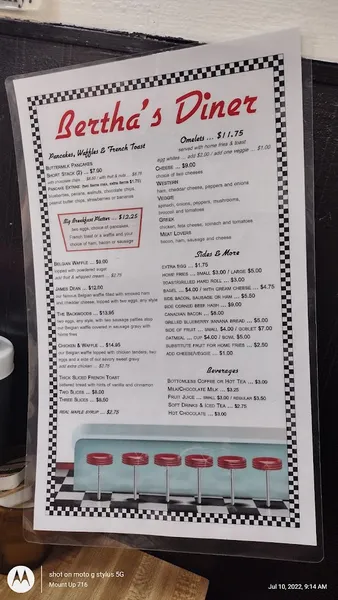 Bertha's Diner
Pancakes, Waffles & French Toast
Buttermilk Pancakes
Short Stack (2) ... $7.50
blueberries, banana, walnuts, chocolate chips,
peanut butter chips, strawberries or bananas
Big Breakfast Platter ... $13.25
two eggs, choice of pancakes,
French toast or a waffle and your
choice of ham, bacon or sausage
Belgian Waffle ... $9.00
topped with powdered sugar
add fruit & whipped cream ... $2.75
James Dean ... $12.50
our famous Belgian waffle filled with
and cheddar cheese, topped with two eggs, any style
The Backwoods ... $13.95
two eggs, any style, with two sausage patties atop
our Belgian waffle covered in sausage gravy with
home fries
Chicken & Waffle ... $14.95
our Belgian waffle topped with chicken tenders, two
eggs and a side of our savory sweet gravy
add extra chicken ... $2.75
Thick Sliced French Toast
battered bread with hints of vanilla and cinnamon
Two Slices ... $6.00
Three Slices ... $8.50
real maple syrup ... $2.75
Omelets ... $11.75
served with home fries & toast
egg whites ... add $2.00 / add one veggie ... $1.00
Cheese ... $9.00
choice of two cheeses
Western
ham, cheddar cheese, peppers and onions
Veggie
spinach, peppers, onions, mushrooms,
broccoli and tomatoes
Greek
chicken, feta cheese, spinach and tomatoes
Meat Lovers
bacon, ham, sausage and cheese
Sides & More
Extra Egg ... $1.75
Home Fries ... Small $3.00 / Large $5.00
Toasted/Grilled Hard Roll ... $3.00
Bagel ... $4.00 / with cream cheese ... $4.75
Side Bacon, Sausage or Ham ... $5.50
Side Corned Beef Hash ... $9.00
Canadian Bacon ... $6.00
Grilled Blueberry Banana Bread ... $5.00
Side of Fruit ... Small $4.00 / Goblet $7.00
Oatmeal ... Cup $4.00 / Bowl $5.00
Substitute Fruit for Home Fries ... $2.50
Add Cheese/Eggs ... $1.00
Beverages
Bottomless Coffee or Hot Tea ... $3.00
Milk/Chocolate Milk ... $3.25
Fruit Juice ... Small $3.00 / Regular $3.50
Soft Drinks & Iced Tea ... $2.75
Hot Chocolate ... $3.00
shot on moto g stylus 5G
Mount Up 716
Jul 10, 2022, 9:14 AM